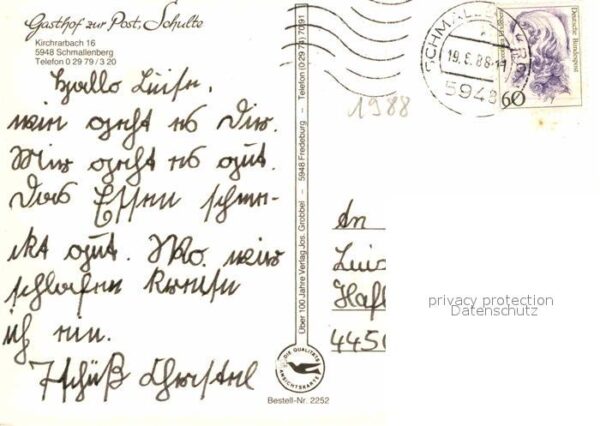 Gasthof zur Post, Schulte
Kirchrarbach 16
5948 Schmallenberg
Telefon 0 29 79 / 3 20
Hallo Luise,
wie geht es Dir.
Mir geht es gut.
Das Essen schme-
ckt gut. Wo wir
schlafen
ich nun.
Tschüß Christel
Über 100 Jahre Verlag Jos. Grobbel – 5948 Fredeburg – Telefon (0 29 74) 70 91
DIE QUALITÄTS
ANSICHTSKARTE
Bestell-Nr. 2252
SCHMALLENBERG
19.6.88-11
5948
1988
Deutsche Bundespost
60
An
Luis
Hafe
4450
privacy protection
Datenschutz